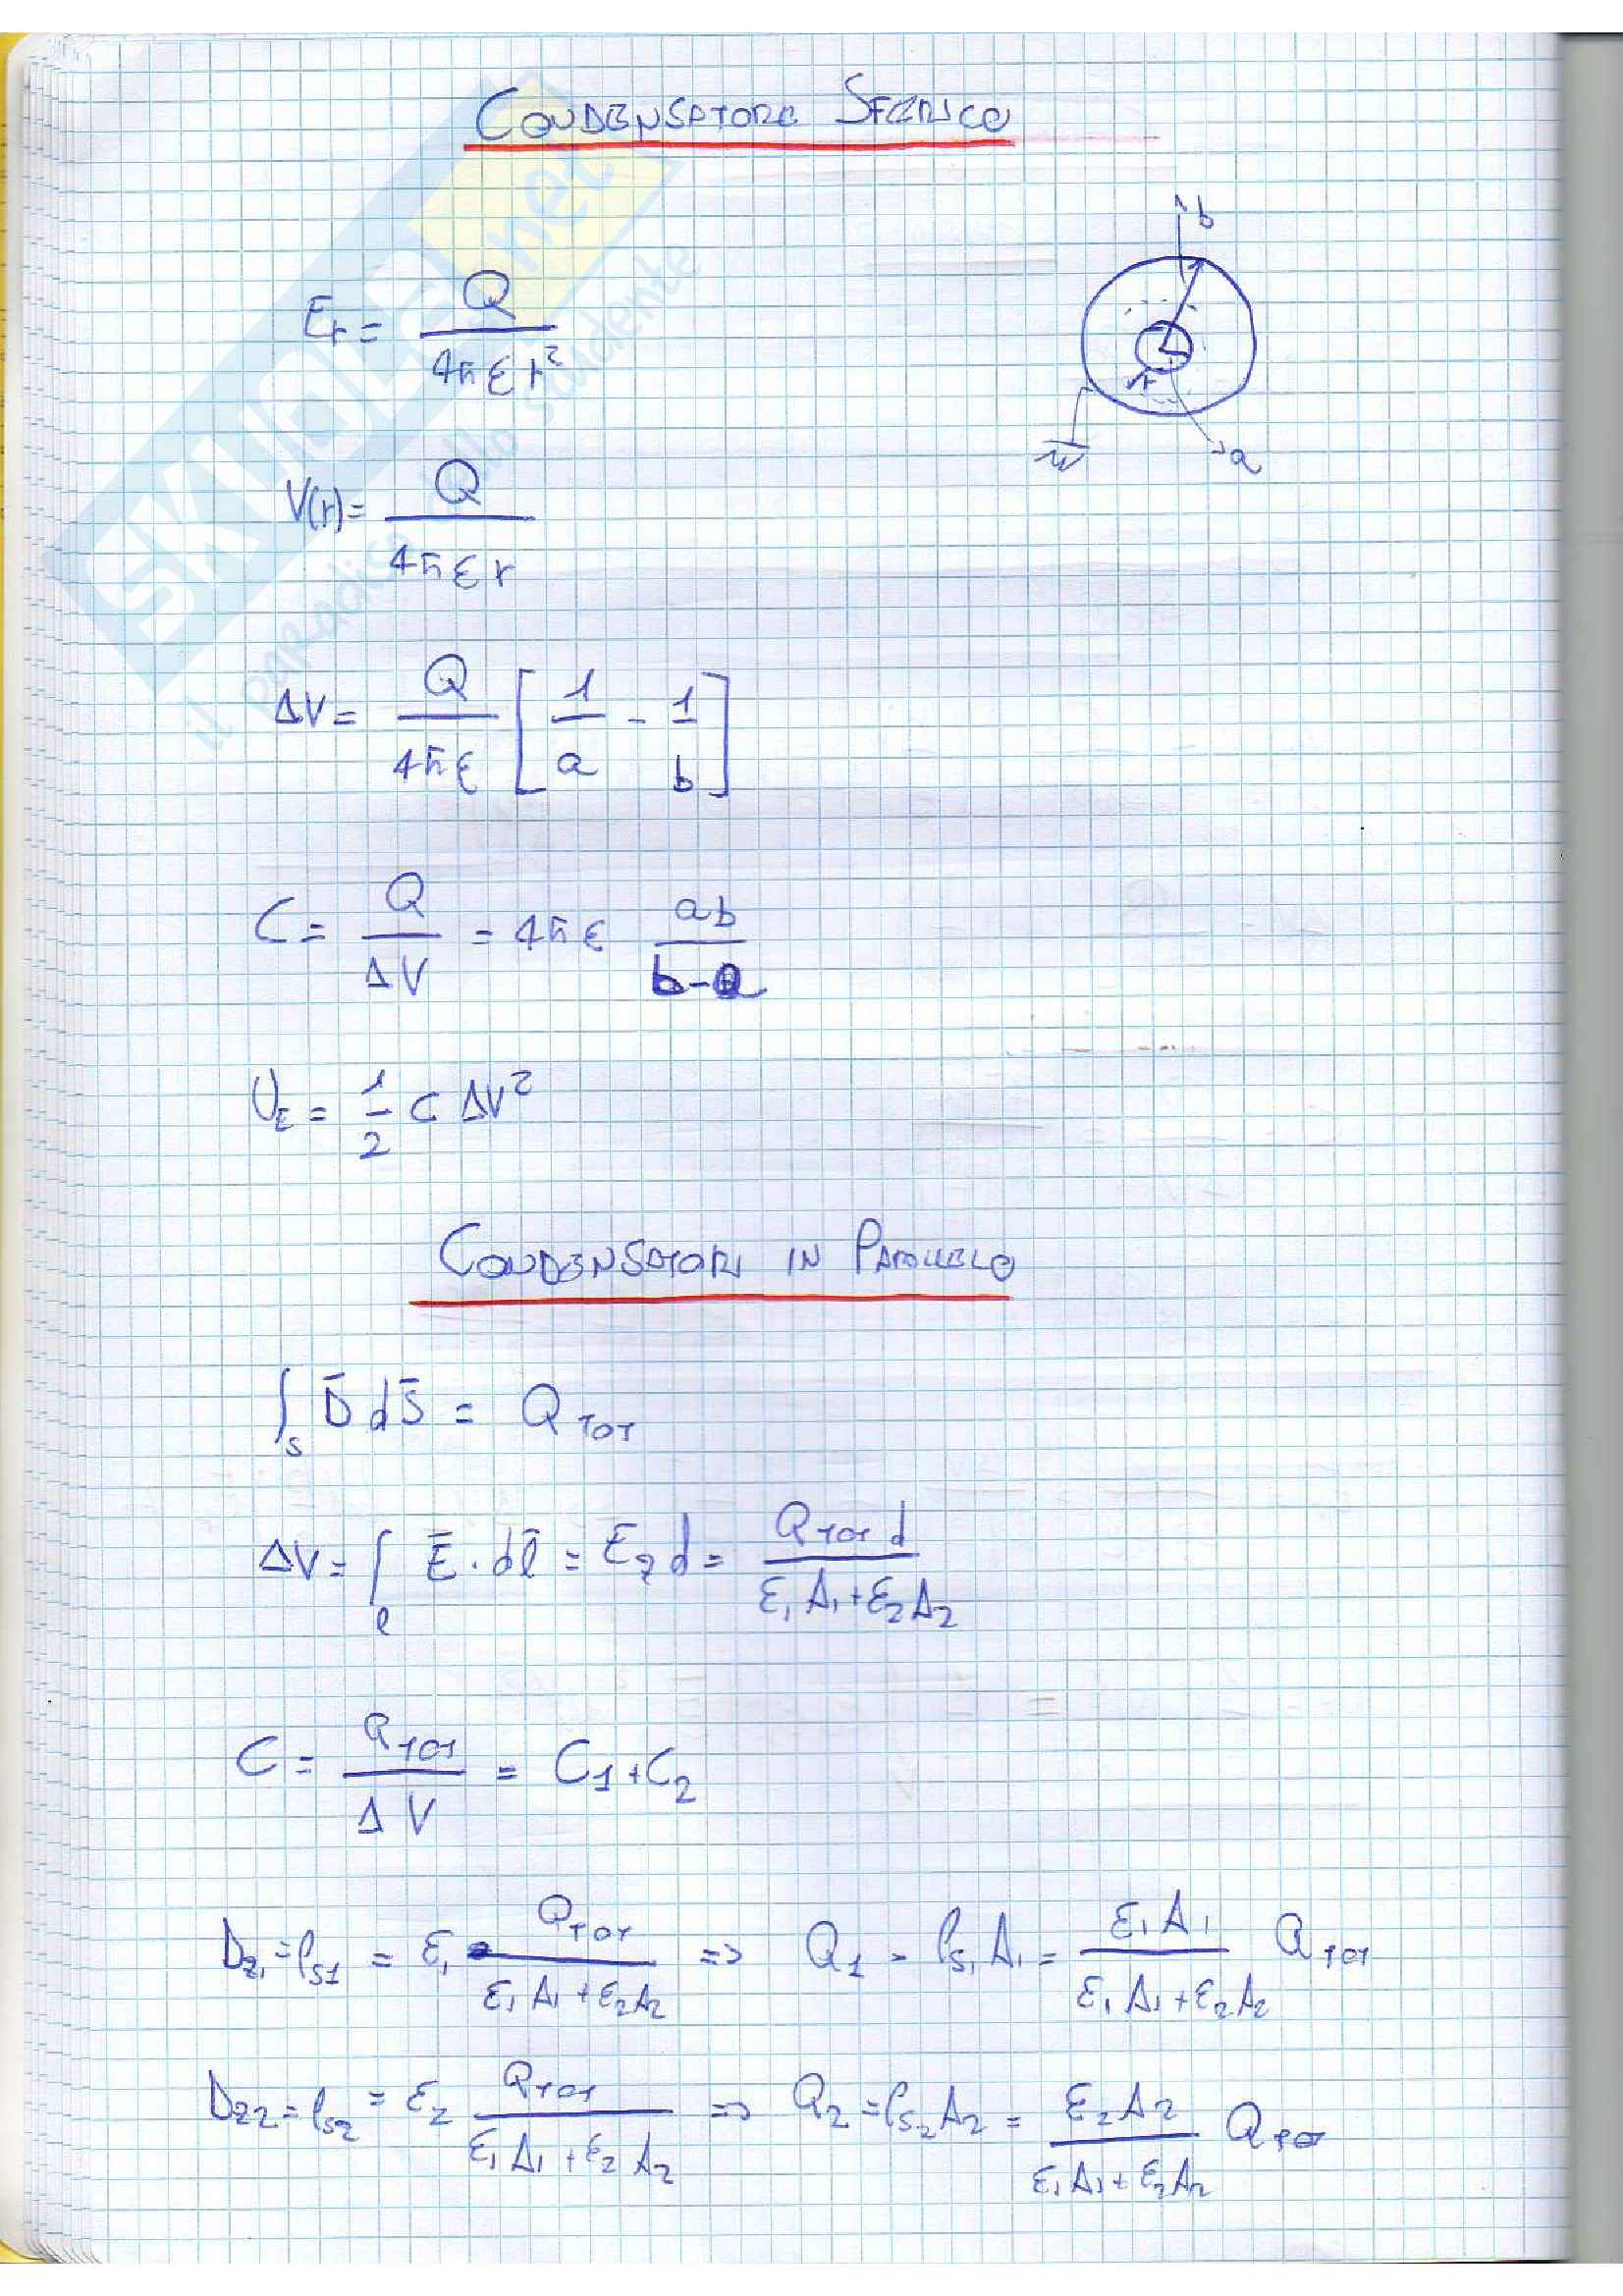 CONDENSATORE SFERICO
b
a
r
E_r = Q / 4π ε r²
V(r) = Q / 4π ε r
ΔV = Q / 4π ε [ 1/a - 1/b ]
C = Q / ΔV = 4π ε ab / b-a
U_E = 1/2 C ΔV²
CONDENSATORI IN PARALLELO
∫_S D̄ dS̄ = Q_TOT
ΔV = ∫_ℓ Ē · dℓ̄ = E_z d = Q_TOT d / ε₁ A₁ + ε₂ A₂
C = Q_TOT / ΔV = C₁ + C₂
D_z1 = ρ_S1 = ε₁ Q_TOT / ε₁ A₁ + ε₂ A₂ => Q₁ = ρ_S1 A₁ = ε₁ A₁ / ε₁ A₁ + ε₂ A₂ Q_TOT
D_z2 = ρ_S2 = ε₂ Q_TOT / ε₁ A₁ + ε₂ A₂ => Q₂ = ρ_S2 A₂ = ε₂ A₂ / ε₁ A₁ + ε₂ A₂ Q_TOT
SKUOLA.net
il paradiso dello studente